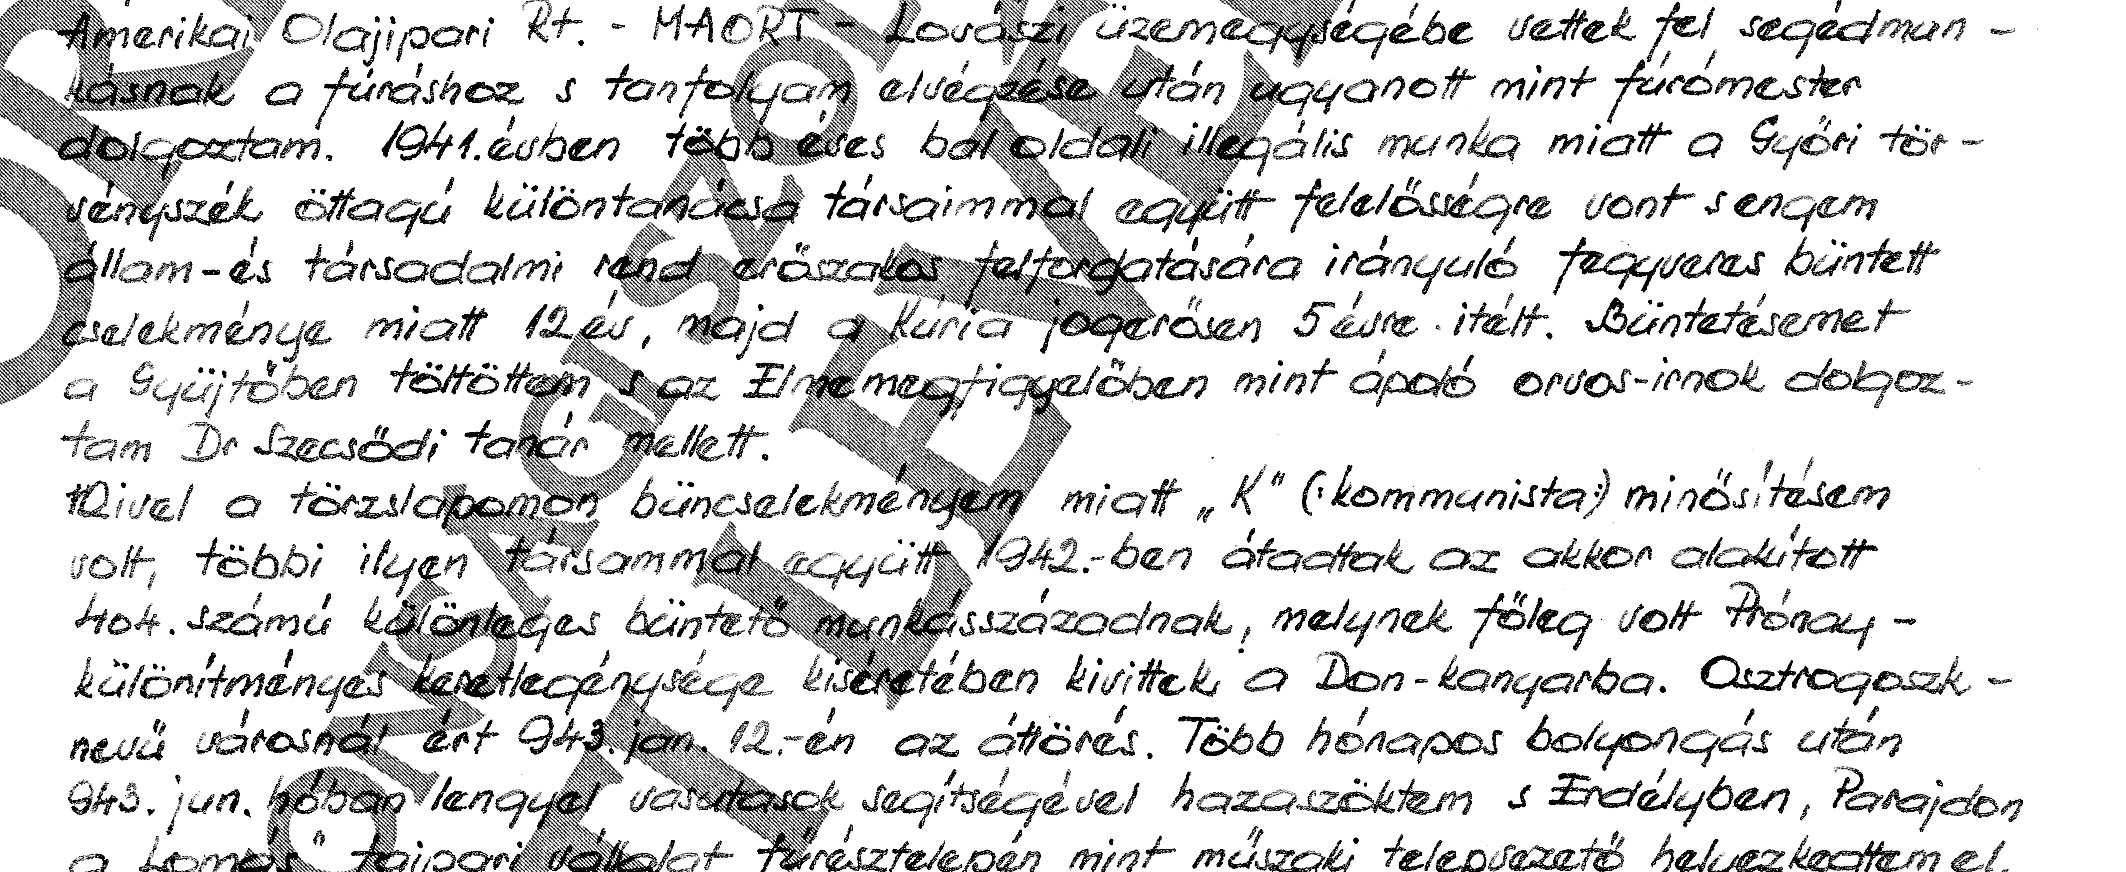 Amerikai Olajipari Rt. - MAORT - Lovászi üzemegységébe vettek fel segédmun -
kásnak a fúráshoz s tanfolyam elvégzése után ugyanott mint fúrómester
dolgoztam. 1941.évben több éves bal oldali illegális munka miatt a Győri tör -
vényszék öttagú különtanácsa társaimmal együtt felelősségre vont s engem
állam-és társadalmi rend erőszakos felforgatására irányuló fegyveres büntett
cselekménye miatt 12 év, majd a Kúria jogerősen 5 évre itélt. Büntetésemet
a Gyüjtőben töltöttem s az Elmemegfigyelőben mint ápoló orvos-irnok dolgoz -
tam Dr Szecsődi tanár mellett.
Mivel a törzslapomon büncselekményem miatt „K" (:kommunista:) minősítésem
volt, többi ilyen társammal együtt 1942.-ben átadtak az akkor alakított
404. számú különleges büntető munkásszázadnak, melynek főleg volt Prónay -
különítményes keretlegénysége kiséretében kivittek a Don-kanyarba. Osztrogoszk -
nevű városnál ért 943. jan. 12.-én az áttörés. Több hónapos bolyongás után
943. jun. hóban lengyel vasutasok segítségével hazaszöktem s Erdélyben, Parajdon
a Lomás" faipari vállalat fűrésztelepén mint műszaki telepvezető helyezkedtem el.